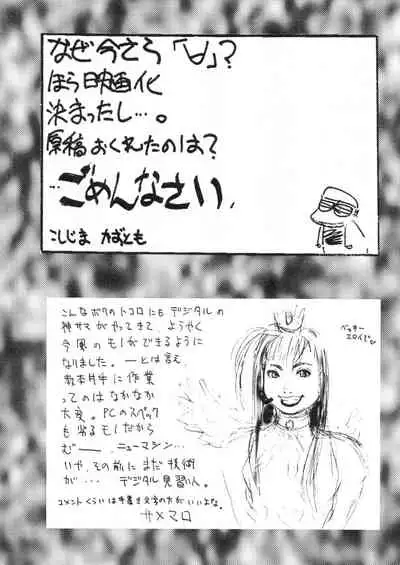 なぜ今さら「∀」?
ほら映画化
決まったし…。
原稿おくれたのは?
…ごめんなさい。
こじじま かずとも
こんなボクのトコロにもデジタルの
神サマがやってきて、ようやく
今風のモノができるように
なりました。―とは言え、
教本片手に作業
ってのはなかなか
大変。PCのスペック
も劣るモノだから
むー――、ニューマシン…
いや、その前にまだ技術
が… デジタル見習い人。
コメントくらいは手書き文字の方がいいよな。
サメマロ